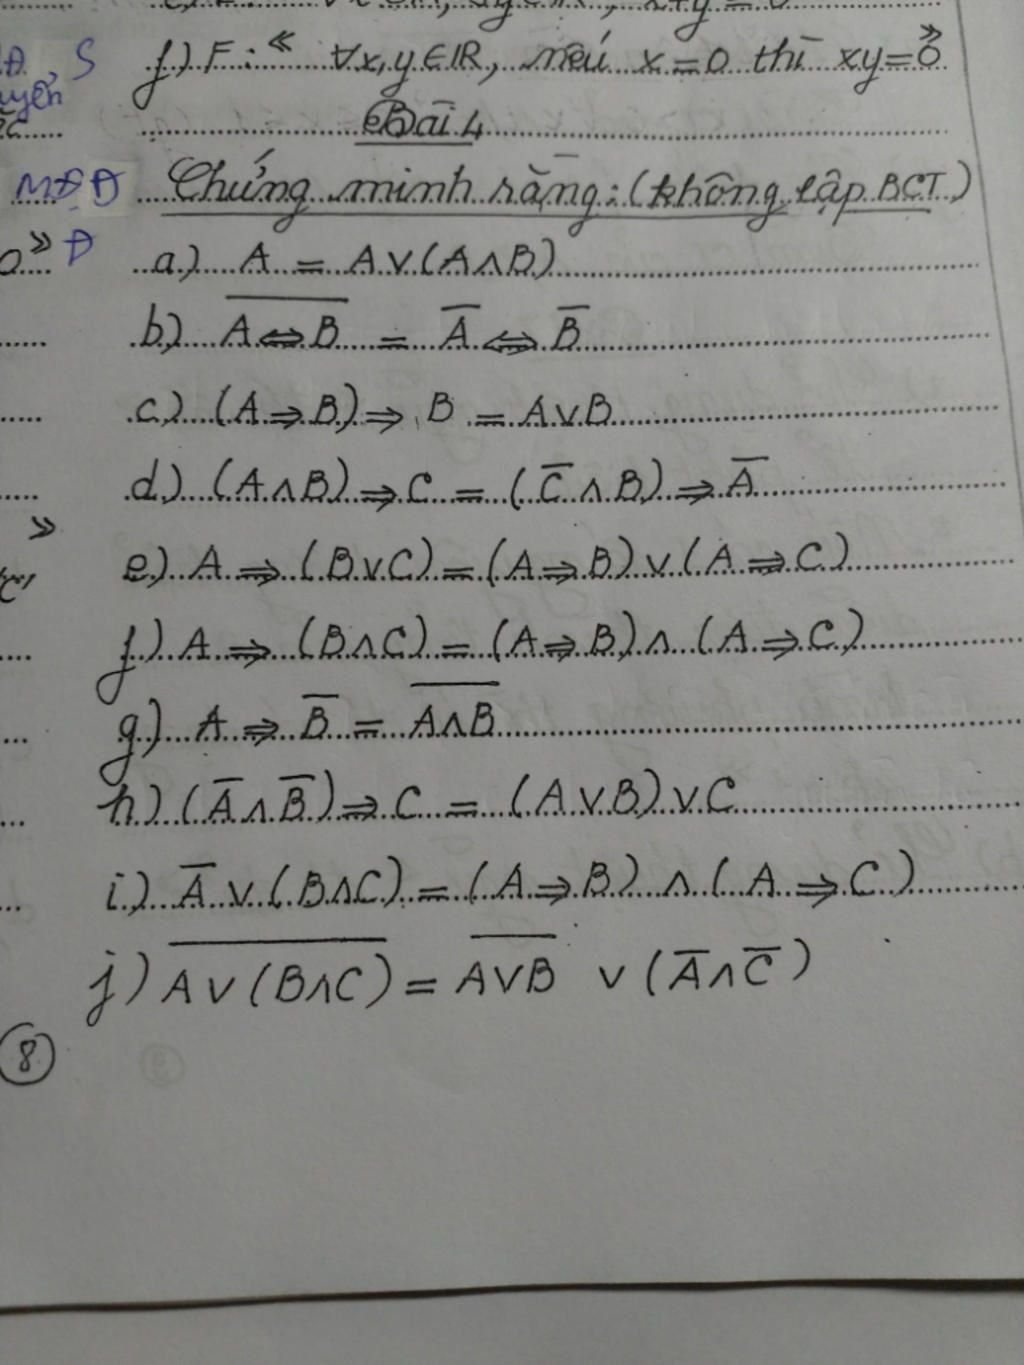 f) F: « ∀x, y ∈ IR, nếu x = 0 thì xy = 0 »
S
Bài 4
MĐ Đ
Chứng minh rằng: (không lập BCT)
0 » Đ
a) A = A ∨ (A ∧ B)
b) \overline{A ⇔ B} = \overline{A} ⇔ \overline{B}
c) (A ⇒ B) ⇒ B = A ∨ B
d) (A ∧ B) ⇒ C = (\overline{C} ∧ B) ⇒ \overline{A}
»
e) A ⇒ (B ∨ C) = (A ⇒ B) ∨ (A ⇒ C)
f) A ⇒ (B ∧ C) = (A ⇒ B) ∧ (A ⇒ C)
g) A ⇒ \overline{B} = \overline{A ∧ B}
h) (\overline{A} ∧ \overline{B}) ⇒ C = (A ∨ B) ∨ C
i) \overline{A} ∨ (B ∧ C) = (A ⇒ B) ∧ (A ⇒ C)
j) \overline{A ∨ (B ∧ C)} = \overline{A ∨ B} ∨ (\overline{A} ∧ \overline{C})
8